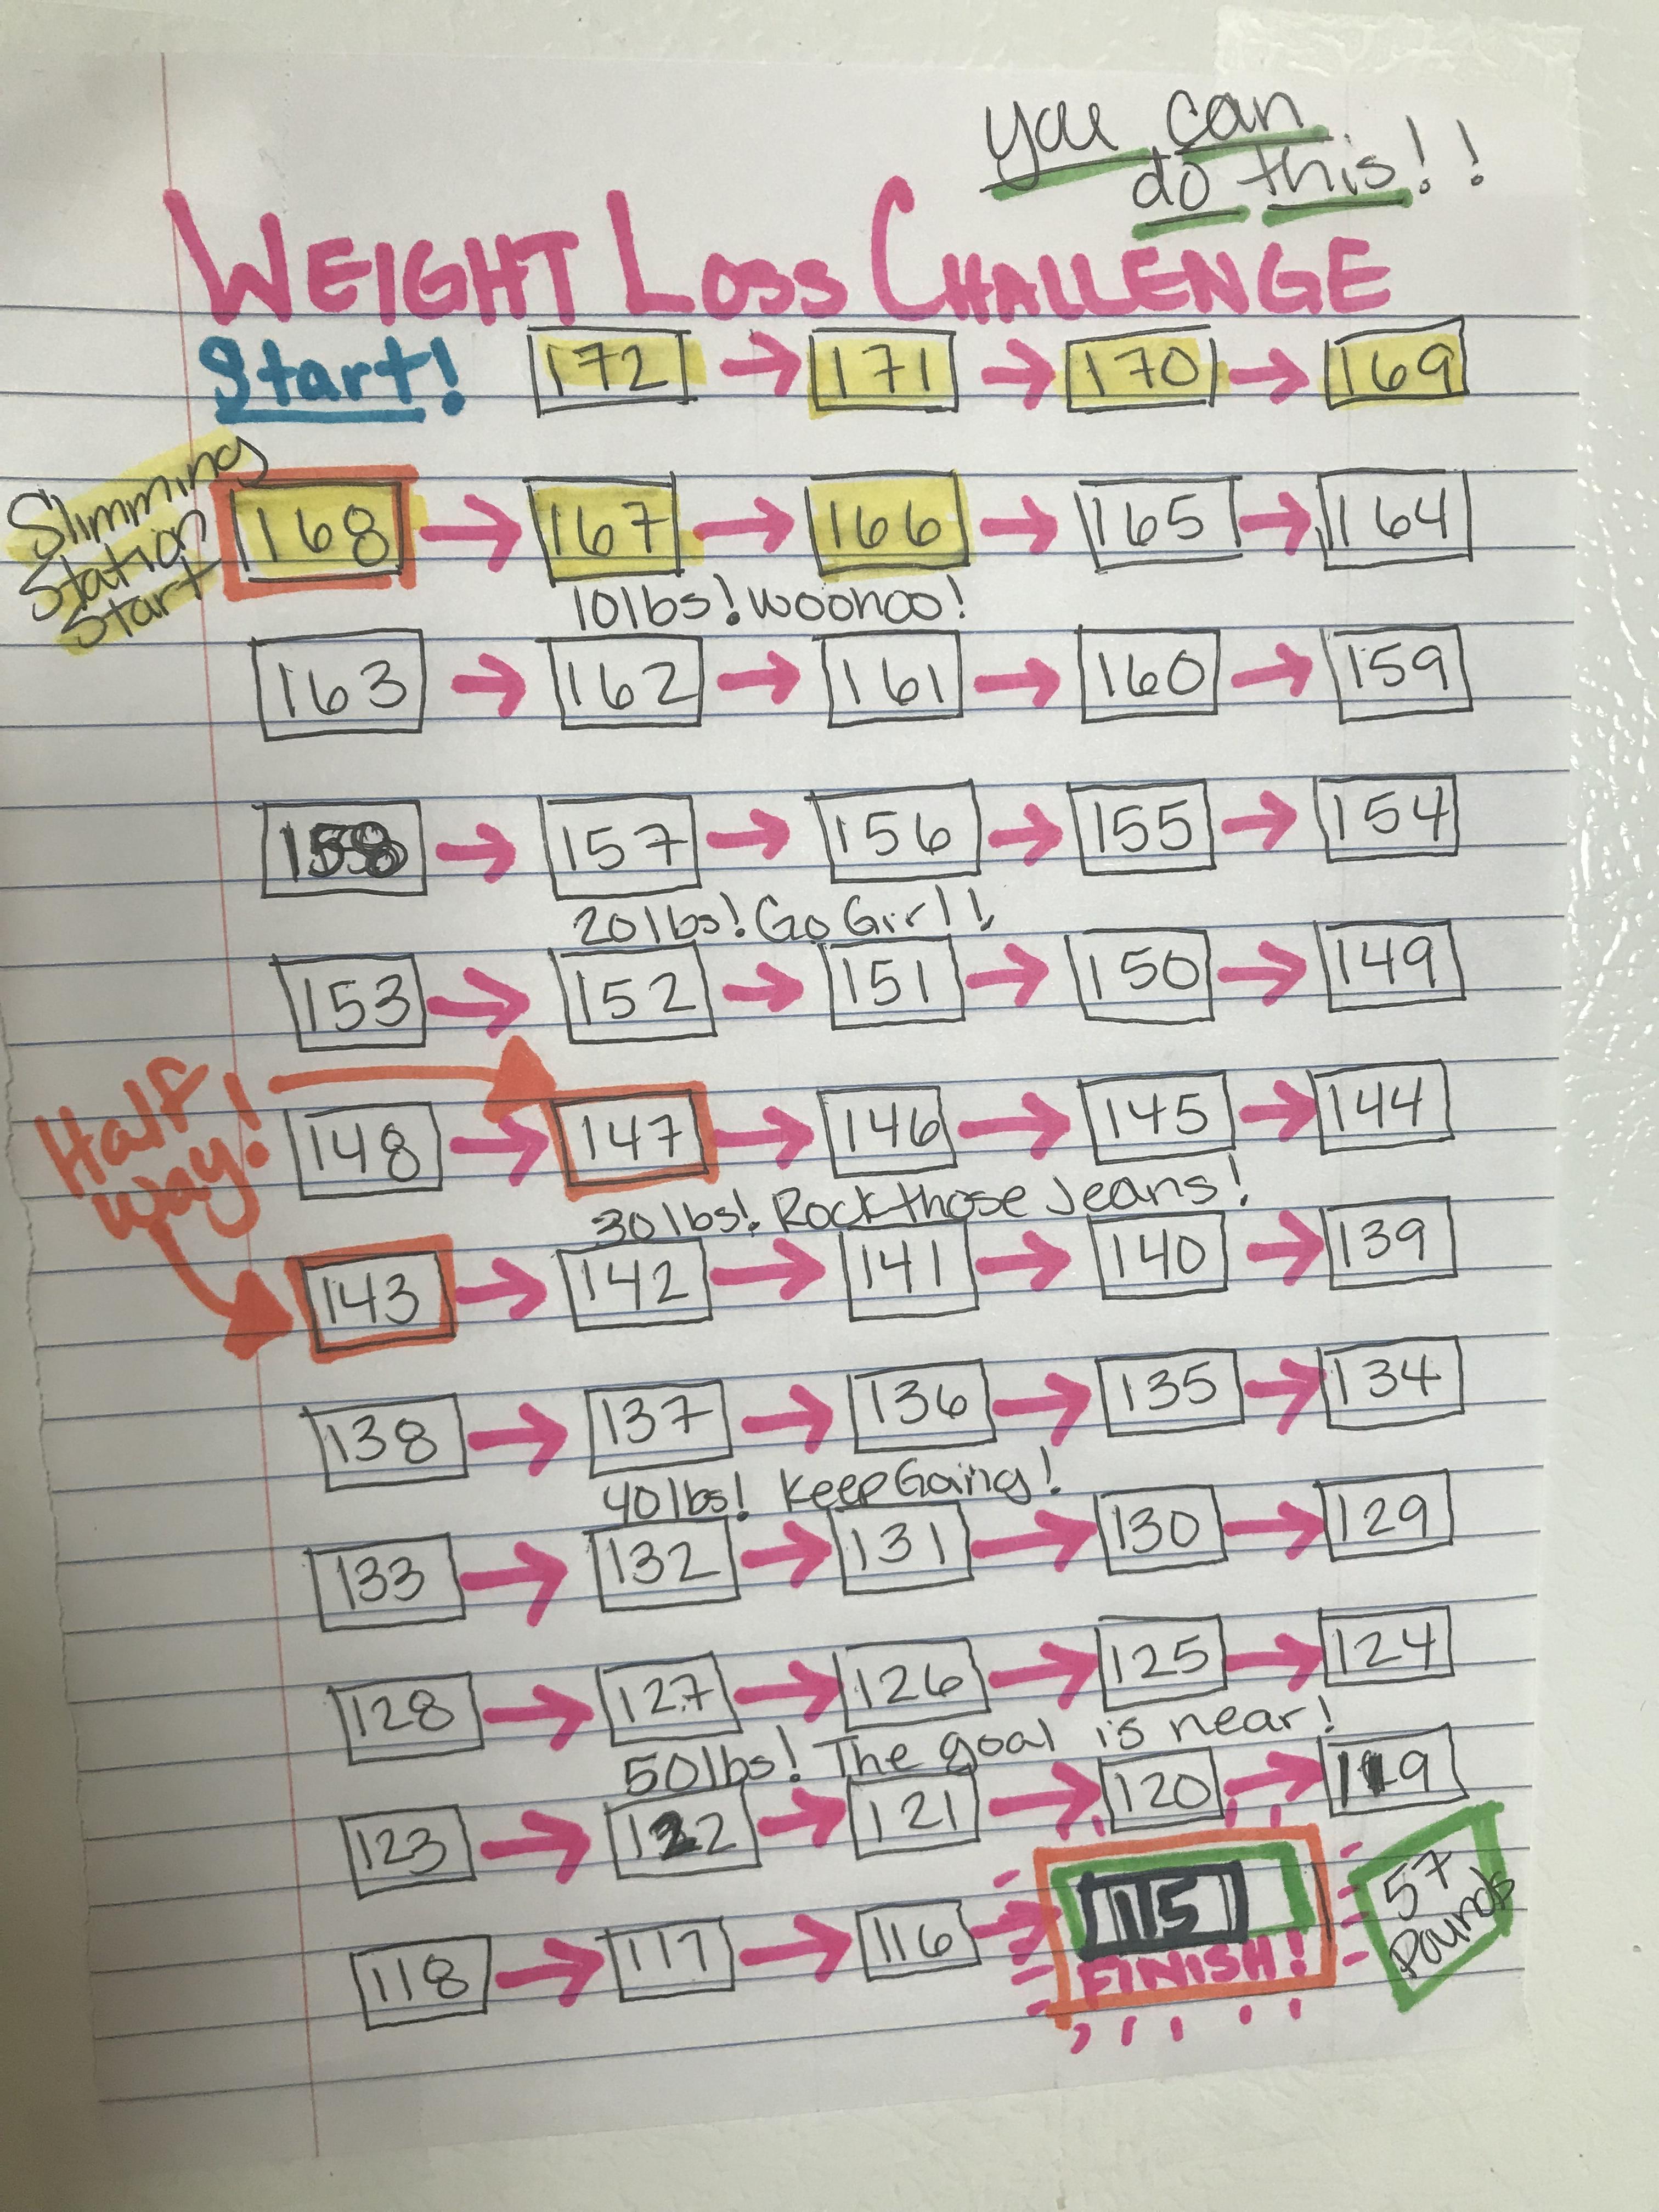 you can
do this!!
WEIGHT LOSS CHALLENGE
Start! 172 → 171 → 170 → 169
Slimming
Station
Start
168 → 167 → 166 → 165 → 164
10lbs! woohoo!
163 → 162 → 161 → 160 → 159
158 → 157 → 156 → 155 → 154
20lbs! Go Girl!
153 → 152 → 151 → 150 → 149
Half
way!
148 → 147 → 146 → 145 → 144
30lbs! Rock those Jeans!
143 → 142 → 141 → 140 → 139
138 → 137 → 136 → 135 → 134
40lbs! Keep Going!
133 → 132 → 131 → 130 → 129
128 → 127 → 126 → 125 → 124
50lbs! The goal is near!
123 → 122 → 121 → 120 → 119
118 → 117 → 116 → 115
FINISH!
57
Pounds